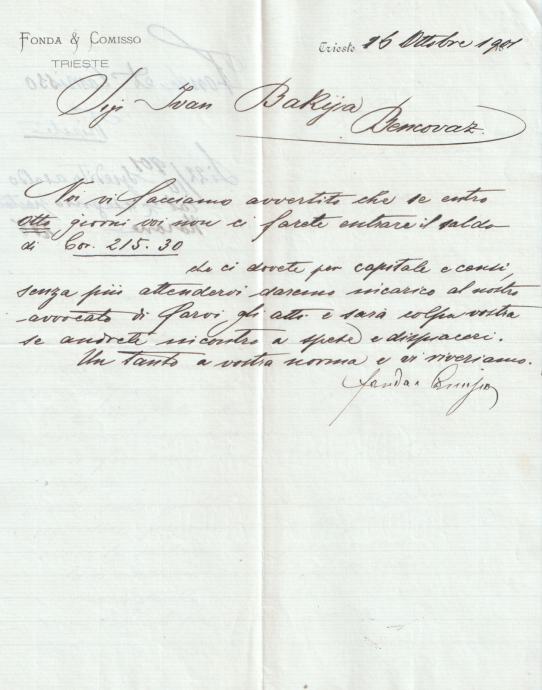 FONDA & COMISSO
TRIESTE
Trieste 26 Ottobre 1901
Sigr Ivan Bakija
Bencovaz
Noi vi facciamo avvertito che se entro
otto giorni voi non ci farete entrare il saldo
di Cor. 215.30
che ci dovete per capitale e
senza più attendervi daremo incarico al nostro
avvocato di farvi gli atti e sarà colpa vostra
se andrete incontro a spese e dispiaceri.
Un tanto a vostra norma e vi riveriamo.
Fonda e Comisso